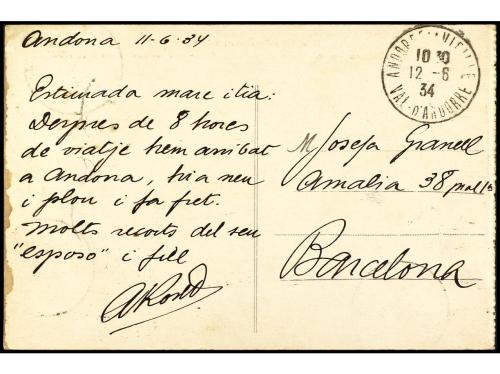 Andorra 11-6-34
Estimada mare i tia:
Despues de 8 hores
de viatje hem arribat
a Andorra, hi a neu
i plou i fa fret.
Molts recorts del seu
"esposo" i fill
ANDORRE-LA-VIEILLE
10 30
12 -6
34
VAL-D'ANDORRE
Josefa Granell
Amalia 38
Barcelona